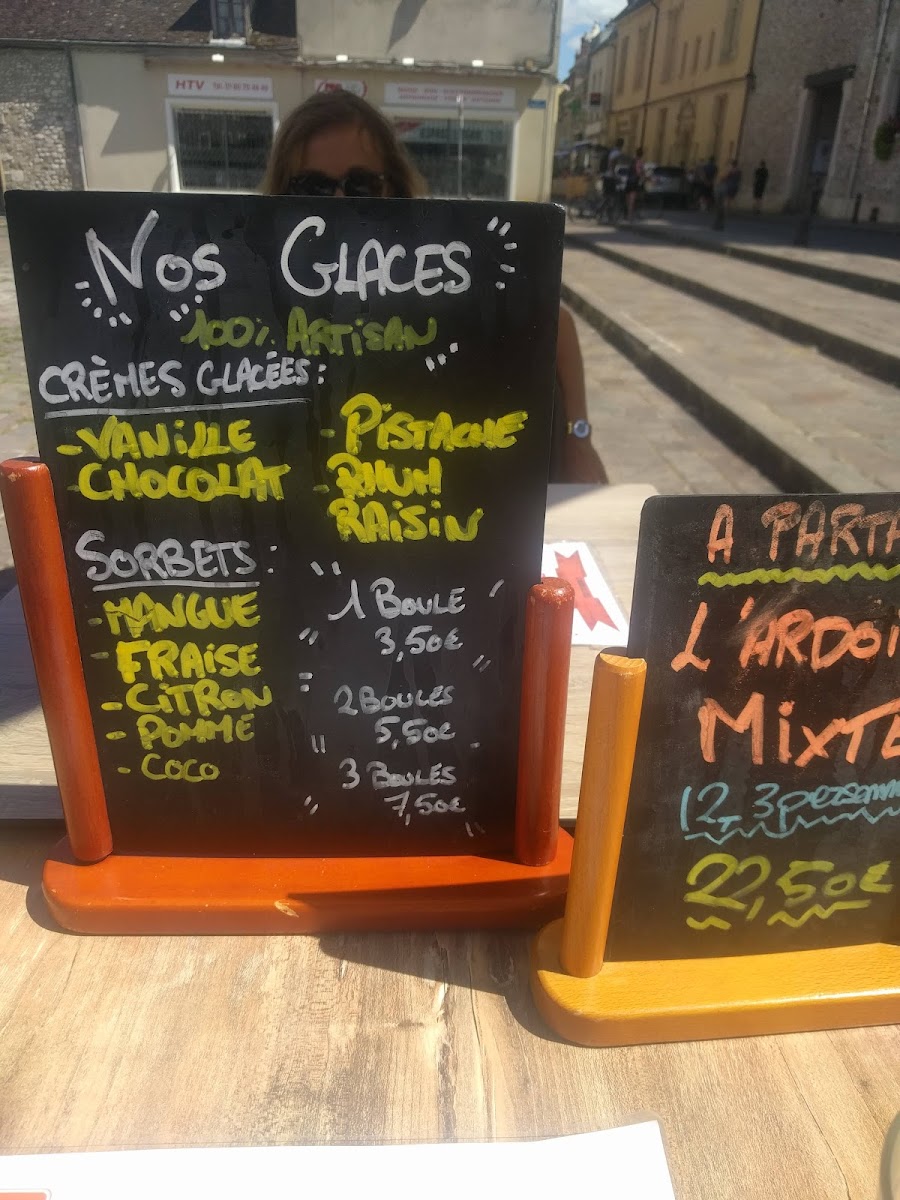 HTV
Nos GLACES
100% ARTISAN
CRÈMES GLACÉES :
- VANILLE
- CHOCOLAT
- PISTACHE
- RHUM
RAISIN
SORBETS :
- MANGUE
- FRAISE
- CITRON
- POMME
- COCO
1 BOULE
3,50€
2 BOULES
5,50€
3 BOULES
7,50€
A PARTA
L'ARDOI
MIXTE
22,50€